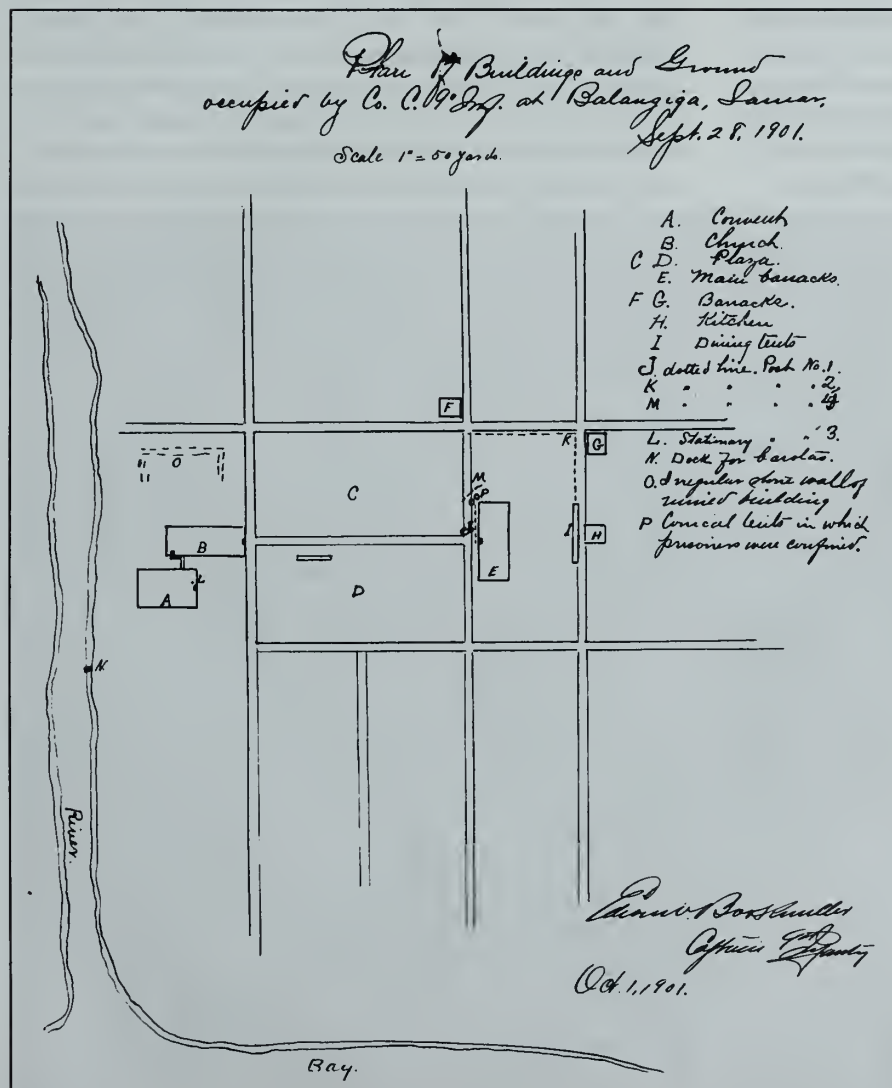 Plan of Buildings and Ground
occupied by Co. C. 9" Inf. at Balangiga, Samar,
Sept. 28, 1901.
Scale 1" = 50 yards.
A. Convent
B. Church.
C D. Plaza.
E. Main barracks.
F G. Barracks.
H. Kitchen
I Dining tents
J. dotted line. Post No. 1.
K " " " " 2,
M " " " " 4
L. Stationary " " 3.
N. Dock for barotas.
O. Irregular stone wall of
ruined building
P Conical tents in which
prisoners were confined.
F
K
G
O
C
M
P
J
I
H
B
E
L
A
D
N.
River.
Captain 9th Infantry
Oct. 1, 1901.
Bay.